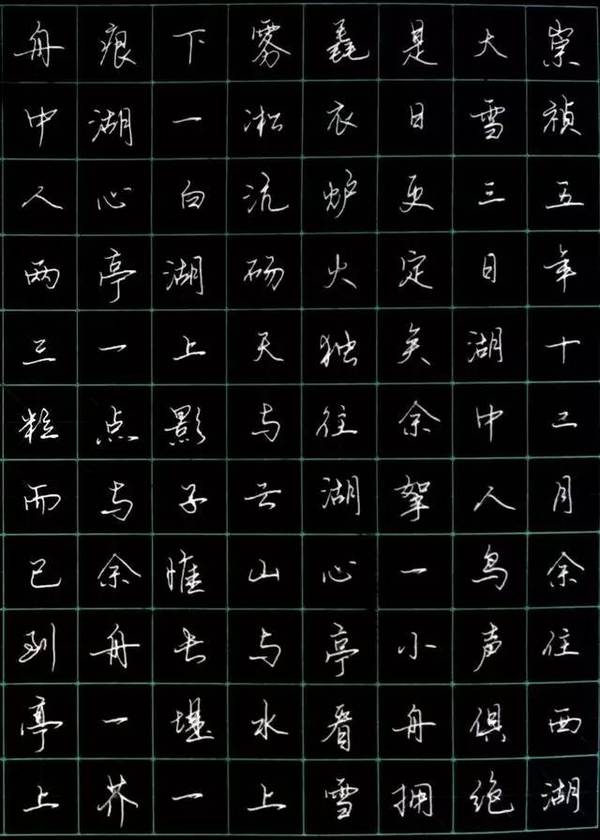 崇祯五年十二月余住西湖
大雪三日湖中人鸟声俱绝
是日更定矣余挐一小舟拥
毳衣炉火独往湖心亭看雪
雾凇沆砀天与云山与水上
下一白湖上影子惟长堤一
痕湖心亭一点与余舟一芥
舟中人两三粒而已到亭上